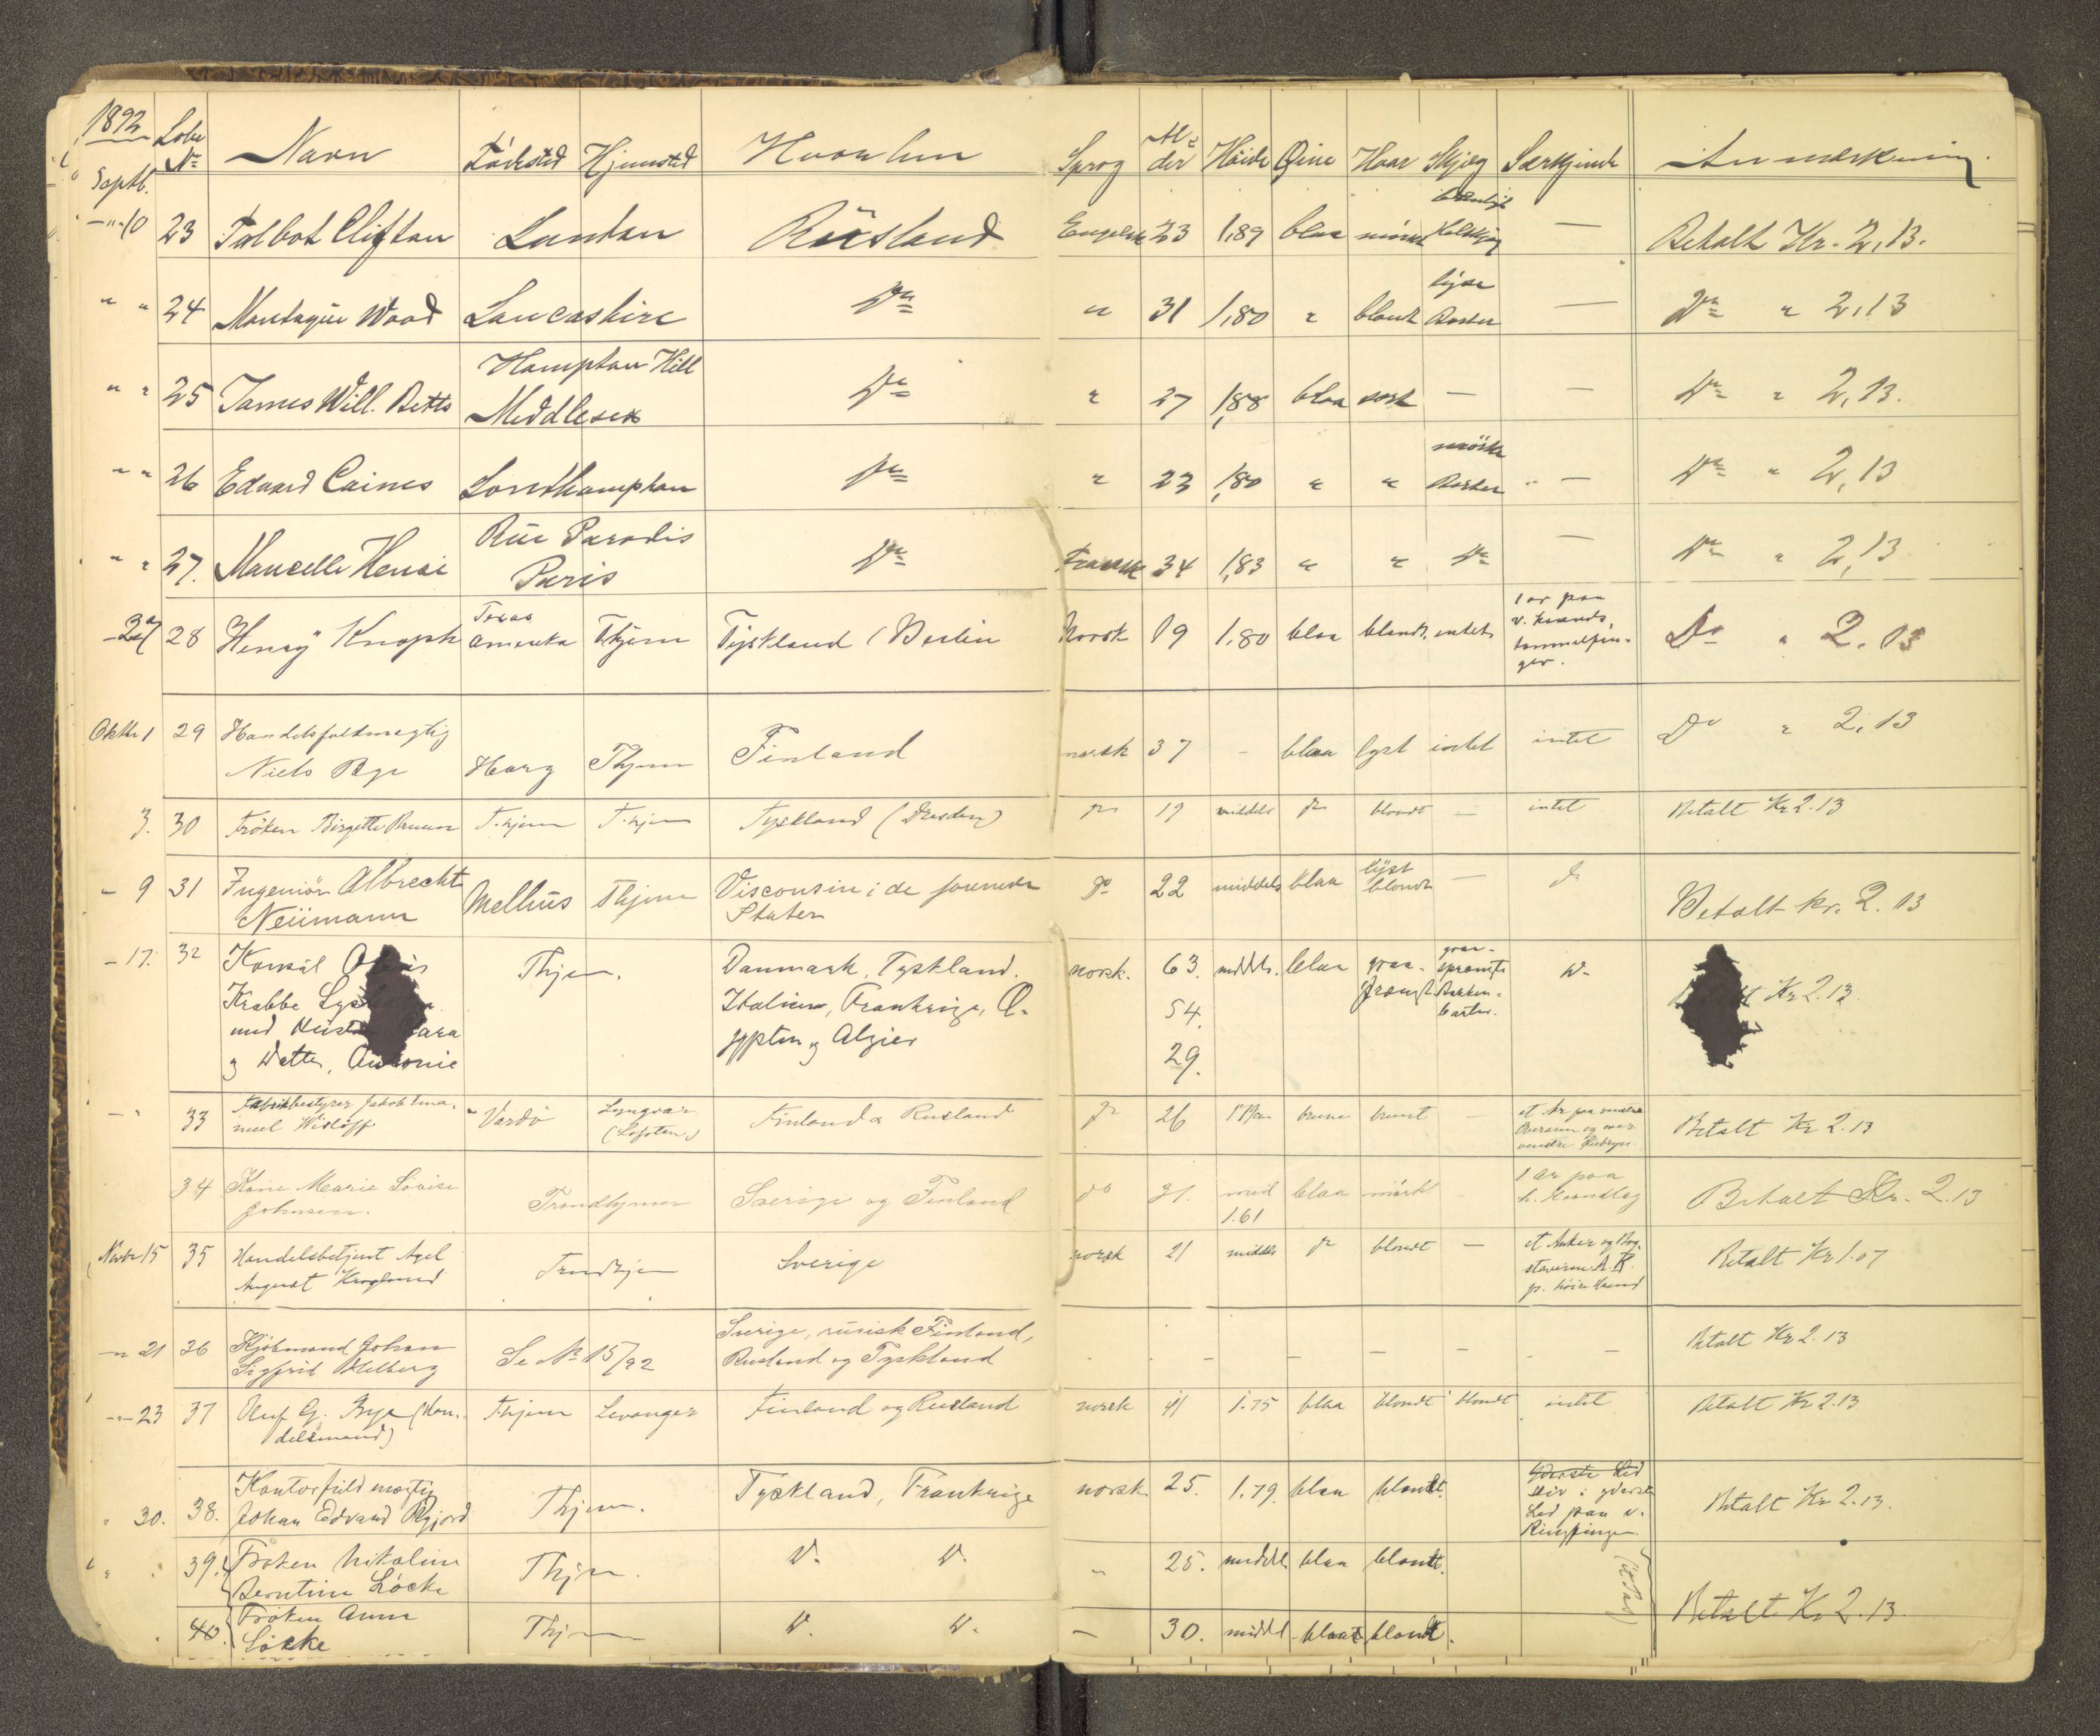 1892 Løbe Nº Navn Fødested Hjemsted Hvorhen Sprog Alder Høide Øine Haar Skjæg Særkjende Anmærkning
Septb.
-"-10 23 Talbot Clifton London Rüsland Engelsk 23 1,89 blaa mörkt Helskjæg — Betalt Kr. 2,13.
" " 24 Montague Wood Lancashire Do " 31 1,80 " blondt lyse Barter — Do " 2,13
" " 25 James Will. Betts Hampton Hill Middlesex Do " 27 1,88 blaa sort — — Do " 2,13.
" " 26 Edward Caines Southampton Do " 23 1,80 " " mörke Barter " — Do " 2,13
" " 27. Marcelle Henri Rue Paradis Paris Do Fransk 34 1,83 " " Do — Do " 2,13
28 Henry Knoph Texas Amerika Thjem Tyskland (Berlin Norsk 19 1.80 blaa blondt, intet 1 ar paa v. haands, tommelfinger. Do " 2.13
Oktbr 1 29 Handelsfuldmægtig
Niels Bye Harg Thjem Finland norsk 37 - blaa lyst intet intet Do " 2,13
3. 30 Frøken Birgitte T.hjem T.hjem Tyskland (Dresden) Do 19 middels Do blondt — intet Betalt Kr 2.13
" 9 31 Ingeniör Albrecht
Neümann Melhus Thjem Visconsin i de forenede
Stater Do 22 middels blaa lyst blondt — Do Betalt kr. 2.13
-17. 32 Konsül
Krabbe
med
og Datter, Antonie Thjem. Danmark, Tyskland.
Italien, Frankrige, Æ-
gypten og Algier norsk. 63. 54. 29. middels. blaa graa- sprængt. graa- sprængte Bakken- barter. Do Kr 2.13.
- " 33 Fabrikbestyrer Jakob Ema-
nuel Wisløff Vardö Lyngvær
(Lofoten) Finland & Rusland Do 26 brune brunt — et Ar paa venstre
Overarm og over
venstre Øiebryn Betalt Kr 2.13
34 Kone Marie Lovise
Johnsen. Trondhjem Sverige og Finland do 31. mid
1.61 blaa mörkt 1 ar paa
h. Haandlag Betalt Kr. 2.13
Novbr 15 35 Handelsbetjent Axel
August Kroglund Trondhjem Sverige norsk 21 middels Do blondt — et Anker og Bog-
staverne A. K.
p. høire Haand Betalt Kr 1.07
-"- 21 36 Kjöbmand Johan
Sigfrid Helberg Se No 15/92 Sverige, rusisk Finland,
Rusland og Tyskland - - - — — - - Betalt Kr 2.13
-"-23 37 Oluf G. Bye (Han-
delsmand) Thjem Levanger Finland og Rusland norsk 41 1.75 blaa blondt blondt intet Betalt Kr 2.13
" 30. 38. Kontorfuldmægtig
Johan Edvard Thjem. Tyskland, Frankrige norsk 25. 1.79. blaa blondt. Yderste Led
stiv i yderste
Led paa v.
Ringfinger. Betalt Kr 2.13.
" " 39. Frøken Nikoline
Berntine Löcke Thjem. D. D. " 25. middel blaa blondt.
40. Frøken Anna
Löcke Thjem D. D. — 30. middel blaa blondt. Betalt Kr 2.13.